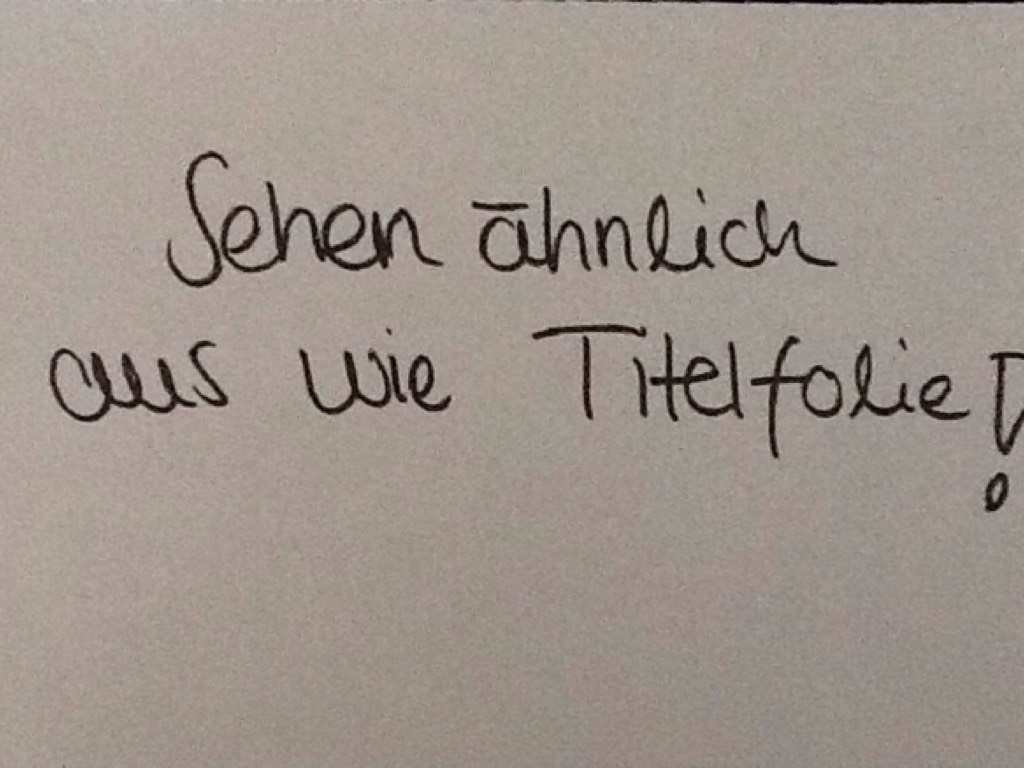 Sehen ähnlich
aus wie Titelfolie!